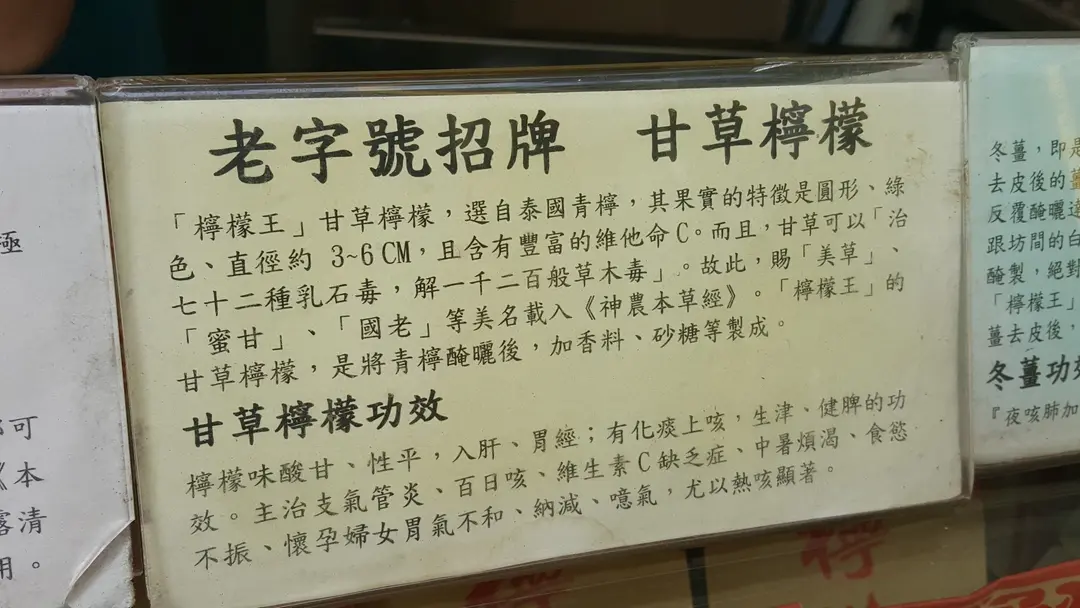 老字號招牌　甘草檸檬
「檸檬王」甘草檸檬，選自泰國青檸，其果實的特徵是圓形、綠
色、直徑約 3~6CM，且含有豐富的維他命C。而且，甘草可以「治
七十二種乳石毒，解一千二百般草木毒」。故此，賜「美草」、
「蜜甘」、「國老」等美名載入《神農本草經》。「檸檬王」的
甘草檸檬，是將青檸醃曬後，加香料、砂糖等製成。
甘草檸檬功效
檸檬味酸甘、性平，入肝、胃經；有化痰上咳，生津、健脾的功
效。主治支氣管炎、百日咳、維生素C缺乏症、中暑煩渴、食慾
不振、懷孕婦女胃氣不和、納減、噫氣，尤以熱咳顯著。
極
可
《本
清
用。
冬薑，即是
去皮後的薑
反覆醃曬達
跟坊間的白
醃製，絕對
「檸檬王」
薑去皮後，
冬薑功效
『夜咳肺加
檸